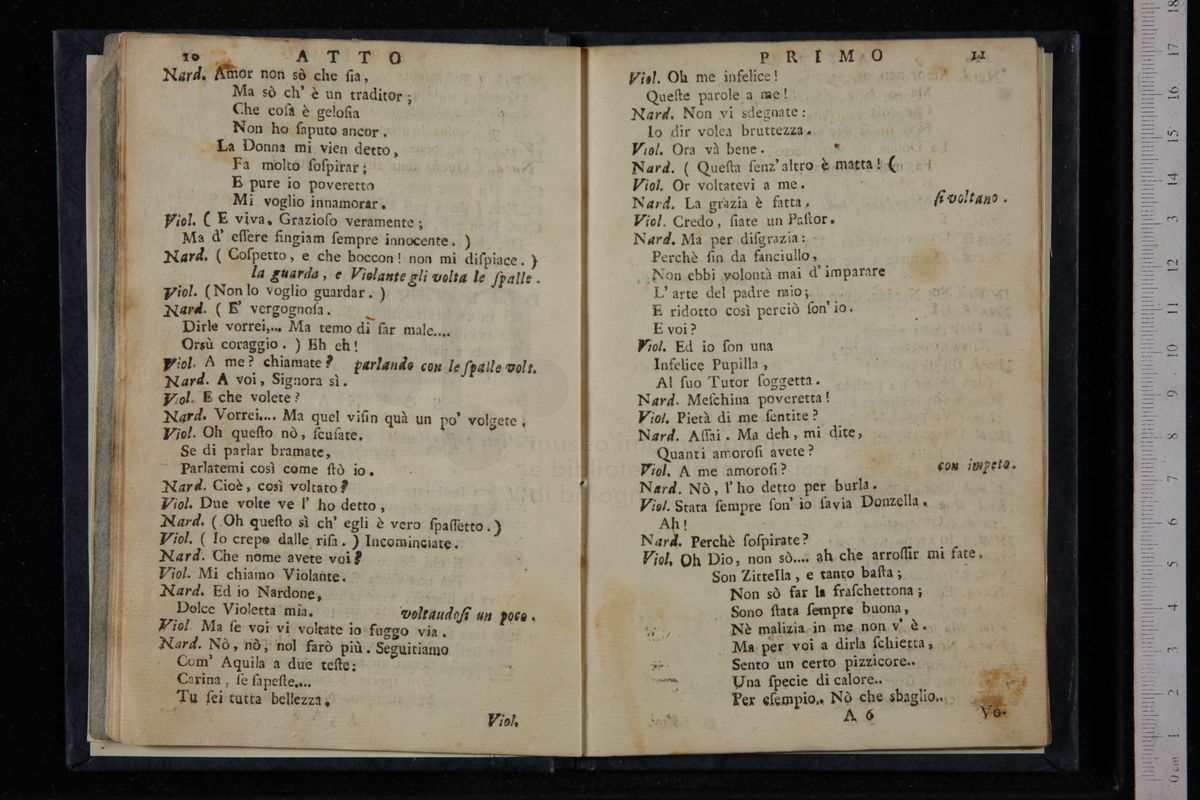 10 ATTO
Nard. Amor non sò che ſia,
Ma sò ch' è un traditor;
Che coſa è geloſia
Non ho ſaputo ancor.
La Donna mi vien detto,
Fa molto ſoſpirar;
E pure io poveretto
Mi voglio innamorar.
Viol. ( E viva. Grazioſo veramente;
Ma d' eſſere fingiam ſempre innocente. )
Nard. ( Coſpetto, e che boccon! non mi diſpiace. )
la guarda, e Violante gli volta le ſpalle.
Viol. (Non lo voglio guardar. )
Nard. ( E' vergognoſa.
Dirle vorrei,... Ma temo di far male....
Orsù coraggio. ) Eh eh!
Viol. A me? chiamate? parlando con le ſpalle volt.
Nard. A voi, Signora sì.
Viol. E che volete?
Nard. Vorrei.... Ma quel viſin quà un po' volgete.
Viol. Oh queſto nò, ſcuſate.
Se di parlar bramate,
Parlatemi così come ſtò io.
Nard. Cioè, così voltato?
Viol. Due volte ve l' ho detto,
Nard. ( Oh queſto sì ch' egli è vero ſpaſſetto. )
Viol. ( Io crepo dalle riſa. ) Incominciate.
Nard. Che nome avete voi?
Viol. Mi chiamo Violante.
Nard. Ed io Nardone,
Dolce Violetta mia. voltaudoſi un poco.
Viol. Ma ſe voi vi voltate io fuggo via.
Nard. Nò, nò, nol farò più. Seguitiamo
Com' Aquila a due teſte:
Carina, ſe ſapeſte....
Tu ſei tutta bellezza.
Viol.
PRIMO 11
Viol. Oh me infelice!
Queſte parole a me!
Nard. Non vi sdegnate:
Io dir volea bruttezza.
Viol. Ora và bene.
Nard. ( Queſta ſenz' altro è matta! (
Viol. Or voltatevi a me.
Nard. La grazia è fatta. ſi voltano.
Viol. Credo, ſiate un Paſtor.
Nard. Ma per diſgrazia:
Perchè ſin da fanciullo,
Non ebbi volontà mai d' imparare
L' arte del padre mio;
E ridotto così perciò ſon' io.
E voi?
Viol. Ed io ſon una
Infelice Pupilla,
Al ſuo Tutor ſoggetta.
Nard. Meſchina poveretta!
Viol. Pietà di me ſentite?
Nard. Aſſai. Ma deh, mi dite,
Quanti amoroſi avete?
Viol. A me amoroſi? con impeto.
Nard. Nò, l' ho detto per burla.
Viol. Stata ſempre ſon' io ſavia Donzella.
Ah!
Nard. Perchè ſoſpirate?
Viol. Oh Dio, non sò.... ah che arroſſir mi fate.
Son Zittella, e tanto baſta;
Non sò far la fraſchettona;
Sono ſtata ſempre buona,
Nè malizia in me non v' è.
Ma per voi a dirla ſchietta,
Sento un certo pizzicore..
Una ſpecie di calore..
Per eſempio.. Nò che sbaglio..
A 6 Vo-